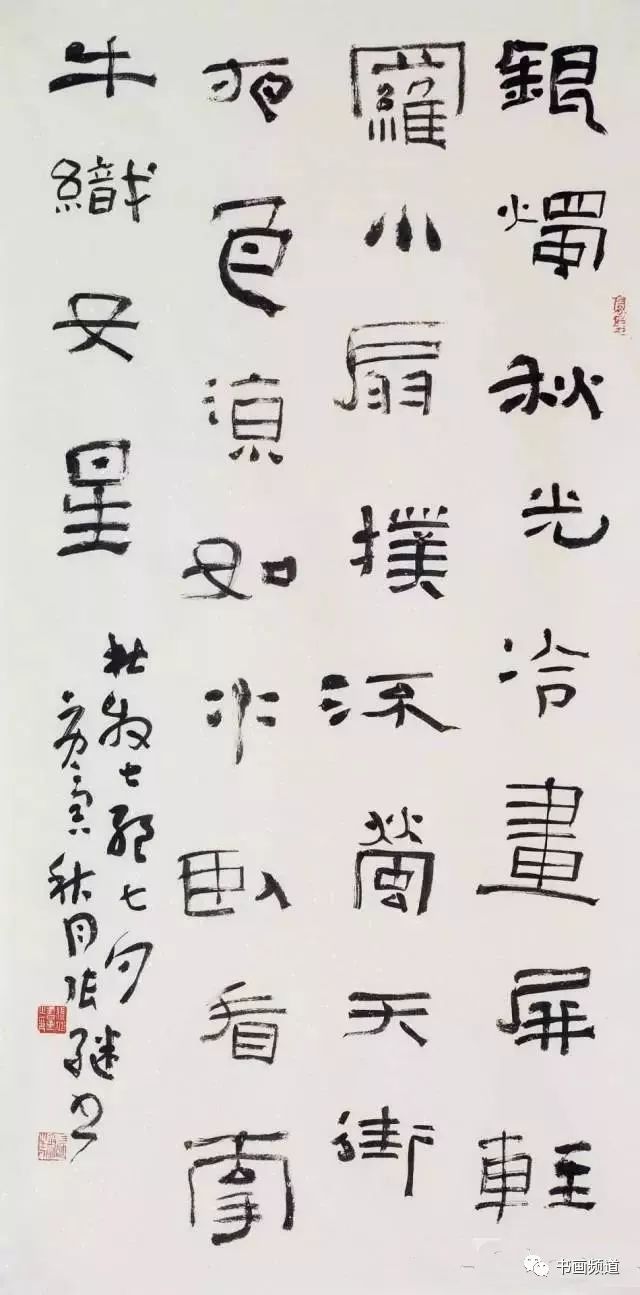 銀燭秋光冷畫屏輕
羅小扇撲流螢天街
夜色涼如水卧看牽
牛織女星
杜牧七絕七夕
庚寅秋月張繼書
书画频道